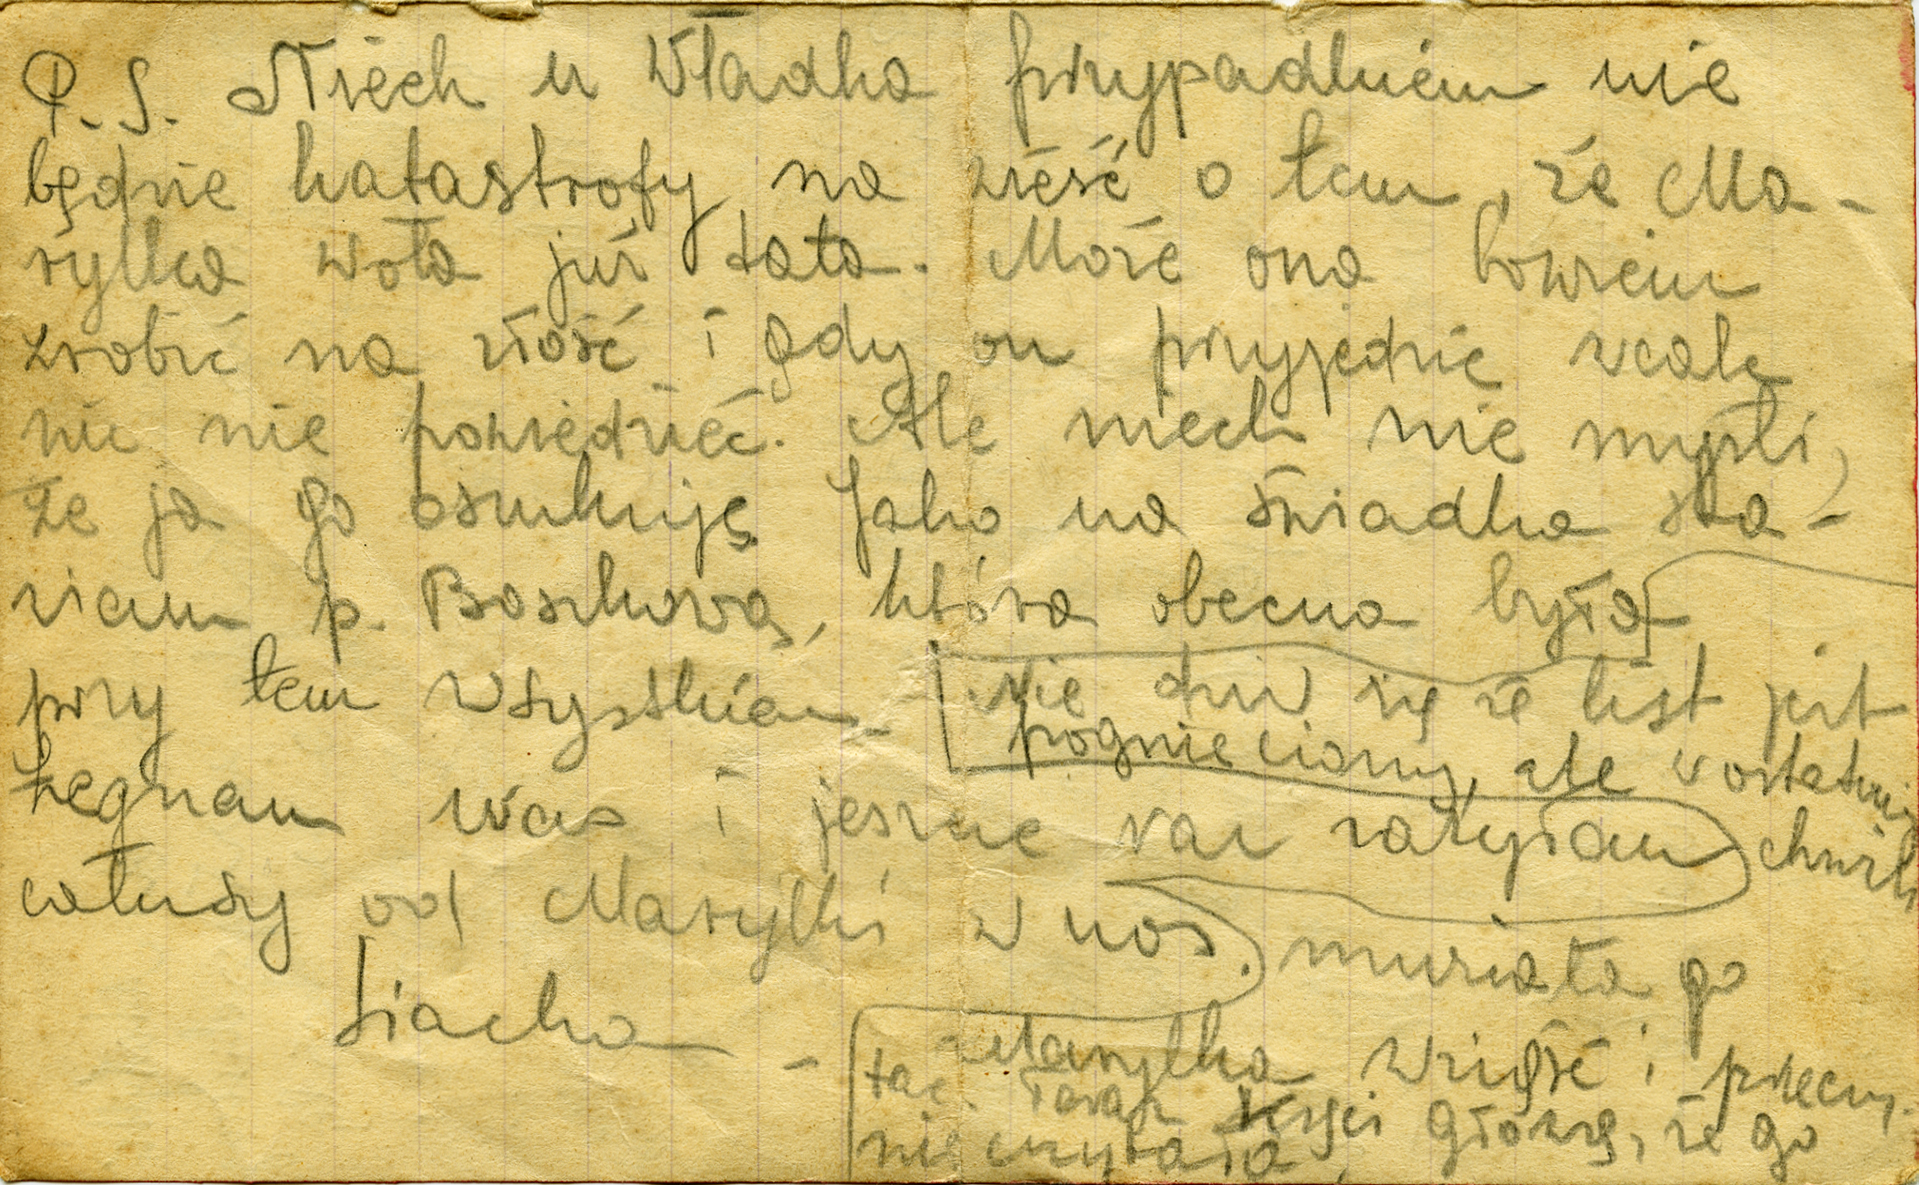 P.S. Niech u Władka przypadkiem nie
będzie katastrofy na wieść o tem, że Ma-
rylka woła już tata. Może ona bowiem
zrobić na złość i gdy on przyjedzie wcale
nic nie powiedzieć. Ale niech nie myśli,
że ja go oszukuję. Jako na świadka sta-
wiam p. Boszkową, która obecna była
przy tem wszystkiem.
Żegnam was i jeszcze raz zasyłam
całusy od Marylki w nos.
Siacha
Nie dziw się że list jest
pognieciony, ale w ostatniej
chwili
musiała go
Marylka wziąść i przeczy-
tać. Teraz kręci głową, że go
nie czytała.